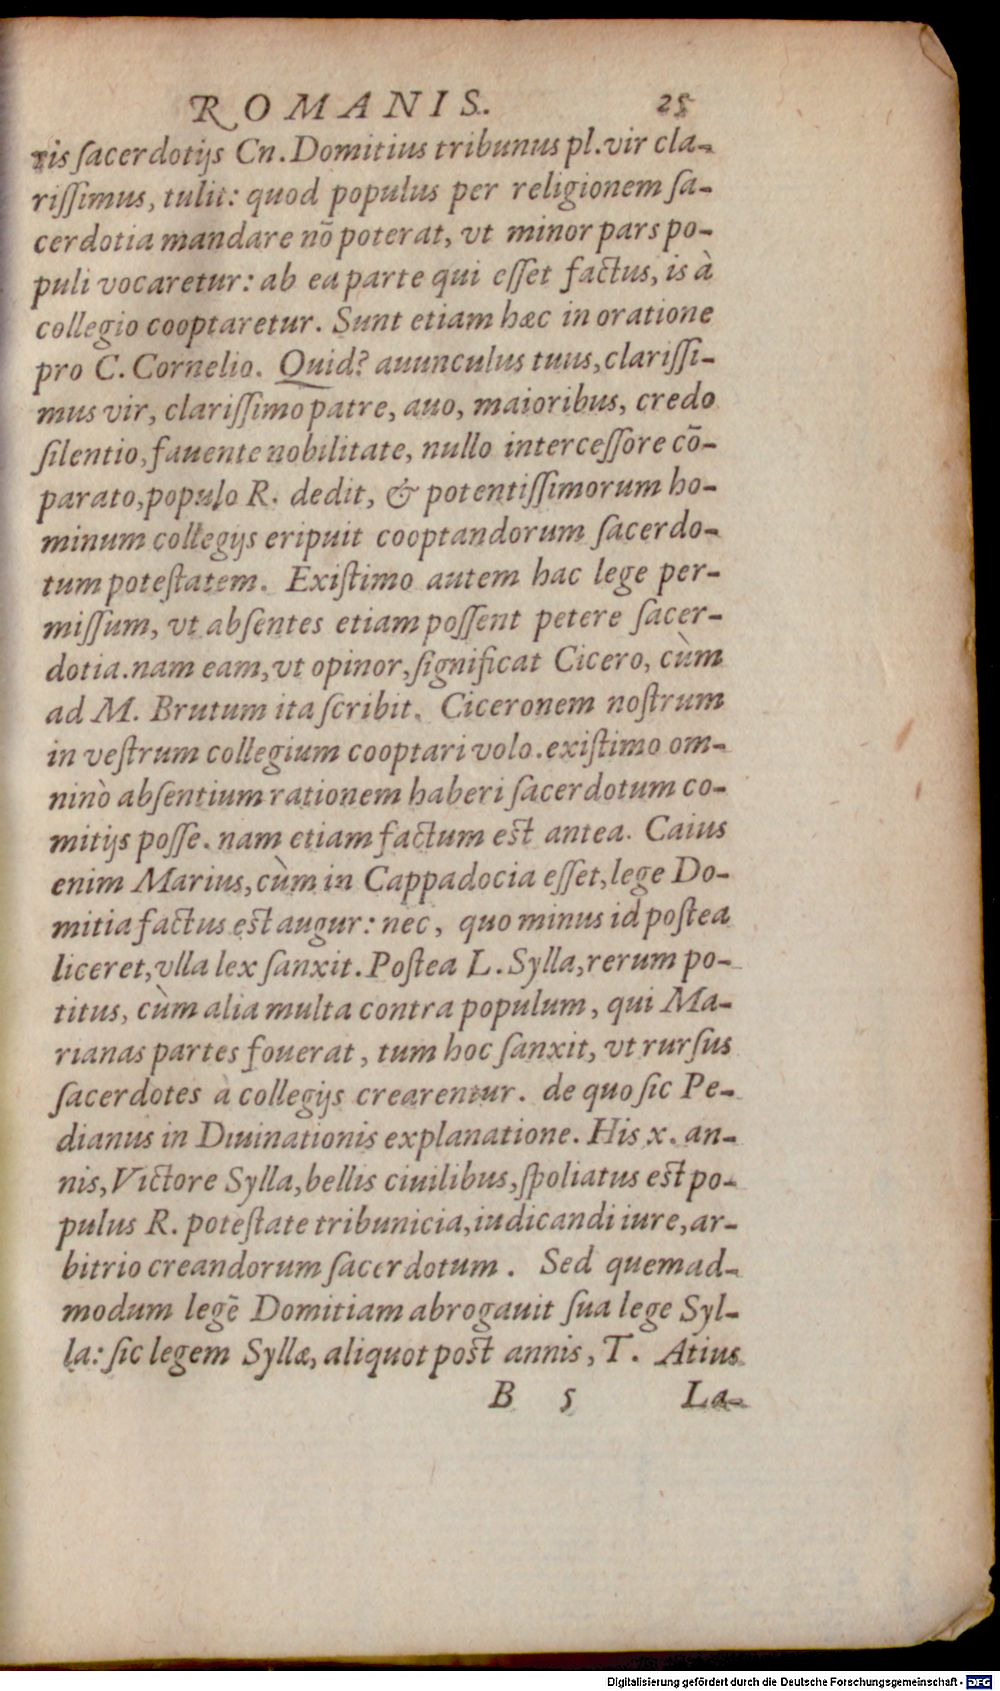 ROMANIS. 25
ris ſacerdotijs Cn. Domitius tribunus pl. vir cla-
riſſimus, tulit: quod populus per religionem ſa-
cerdotia mandare nō poterat, vt minor pars po-
puli vocaretur: ab ea parte qui eſſet factus, is à
collegio cooptaretur. Sunt etiam hæc in oratione
pro C. Cornelio. Quid? auunculus tuus, clariſſi-
mus vir, clariſſimo patre, auo, maioribus, credo
ſilentio, fauente nobilitate, nullo interceſſore cō-
parato, populo R. dedit, & potentiſſimorum ho-
minum collegijs eripuit cooptandorum ſacerdo-
tum poteſtatem. Exiſtimo autem hac lege per-
miſſum, vt abſentes etiam poſſent petere ſacer-
dotia. nam eam, vt opinor, ſignificat Cicero, cùm
ad M. Brutum ita ſcribit. Ciceronem noſtrum
in veſtrum collegium cooptari volo. exiſtimo om-
ninò abſentium rationem haberi ſacerdotum co-
mitijs poſſe. nam etiam factum est antea. Caius
enim Marius, cùm in Cappadocia eſſet, lege Do-
mitia factus est augur: nec, quo minus id poſtea
liceret, vlla lex ſanxit. Poſtea L. Sylla, rerum po-
titus, cùm alia multa contra populum, qui Ma-
rianas partes fouerat, tum hoc ſanxit, vt rurſus
ſacerdotes à collegijs crearentur. de quo ſic Pe-
dianus in Diuinationis explanatione. His x. an-
nis, Victore Sylla, bellis ciuilibus, ſpoliatus est po-
pulus R. poteſtate tribunicia, iudicandi iure, ar-
bitrio creandorum ſacerdotum. Sed quemad-
modum legē Domitiam abrogauit ſua lege Syl-
la: ſic legem Syllæ, aliquot post annis, T. Atius
B 5 La-
Digitalisierung gefördert durch die Deutsche Forschungsgemeinschaft - DFG